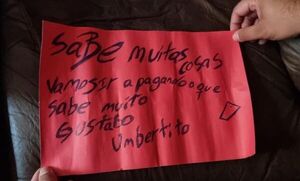 SaBE muitas cosas
Vamosir a pagando o que
Sabe muito
Gostato
Umbertito